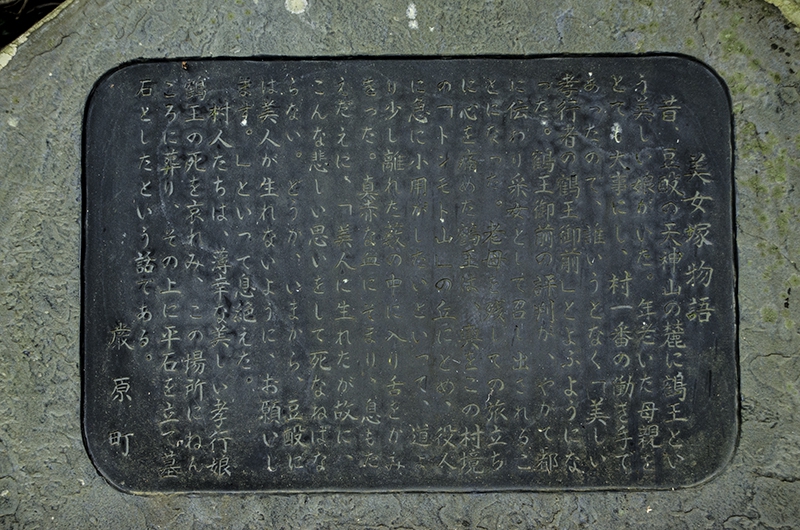 美女塚物語
昔、豆酘の天神山の麓に鶴王とい
う美しい娘がいた。年老いた母親を
とても大事にし、村一番の働き手で
あったので、誰いうとなく「美しい
孝行者の鶴王御前」とよぶようにな
った。鶴王御前の評判が、やがて都
に伝わり采女として召し出されるこ
とになった。老母を残しての旅立ち
に心を痛めた鶴王は、輿をこの村境
の「トドモト山」の丘にとめ、役人
に急に小用がしたいといって、道よ
り少し離れた薮の中に入り舌をかみ
きった。真赤な血にそまり、息もた
えだえに、「美人に生れたが故に、
こんな悲しい思いをして死なねばな
らない。どうか、いまから、豆酘に
は美人が生れないように、お願いし
ます。」といって息絶えた。
村人たちは、薄幸な美しい孝行娘
鶴王の死を哀れみ、この場所にねん
ころに葬り、その上に平石を立て墓
石としたという話である。
厳原町